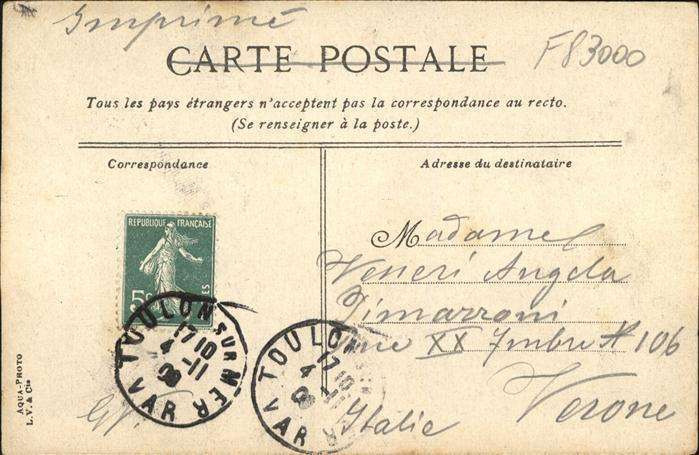 Imprimé
F83000
CARTE POSTALE
Tous les pays étrangers n'acceptent pas la correspondance au recto.
(Se renseigner à la poste.)
Correspondance
Adresse du destinataire
REPUBLIQUE FRANÇAISE
5c
TOULON SUR MER
17 10
4 -11
VAR
AQUA-PHOTO
L.V. & Cie
TOULON
17 10
4
VAR
Madame
Veneri Angela
XX 7mbre N 106
Verone
Italie